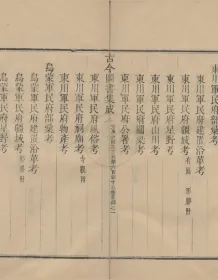 東川軍民府部彙考
東川軍民府建置沿革考
東川軍民府疆域考 形勝附
東川軍民府星野考
東川軍民府山川考
東川軍民府關梁考
東川軍民府公署考
古今圖書集成
東川軍民府風俗考
東川軍民府祠廟考 寺觀附
東川軍民府物產考
烏蒙軍民府部彙考
烏蒙軍民府建置沿革考
烏蒙軍民府疆域考 形勝附
烏蒙軍民府星野考